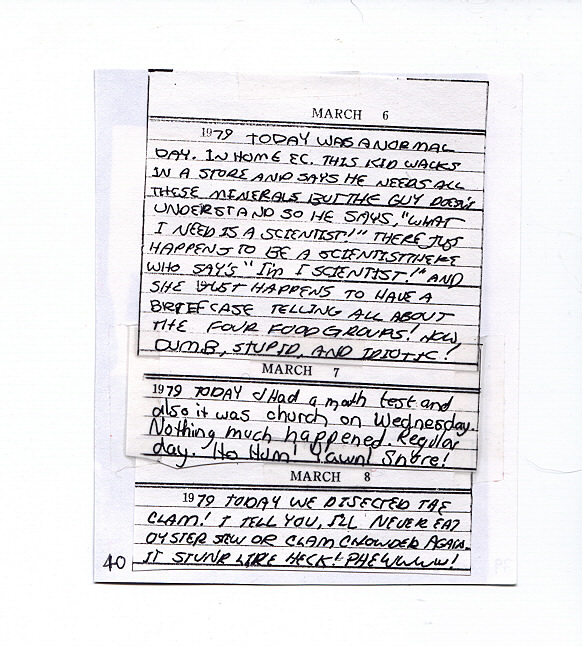 MARCH 6
1979 TODAY WAS A NORMAL
DAY. IN HOME EC. THIS KID WALKS
IN A STORE AND SAYS HE NEEDS ALL
THESE MINERALS BUT THE GUY DOESN'T
UNDERSTAND SO HE SAYS, "WHAT
I NEED IS A SCIENTIST!" THERE JUST
HAPPENS TO BE A SCIENTIST THERE
WHO SAY'S "I'm I SCIENTIST!" AND
SHE JUST HAPPENS TO HAVE A
BRIEFCASE TELLING ALL ABOUT
THE FOUR FOOD GROUPS! HOW,
DUMB, STUPID, AND IDIOTIC!
MARCH 7
1979 TODAY I Had a math test and
also it was church on Wednesday.
Nothing much happened. Regular
day. Ho Hum! Yawn! Snore!
MARCH 8
1979 TODAY WE DISECTED THE
CLAM! I TELL YOU, I'LL NEVER EAT
OYSTER STEW OR CLAM CHOWDER AGAIN.
IT STUNK LIKE HECK! PHEWWWW!
40